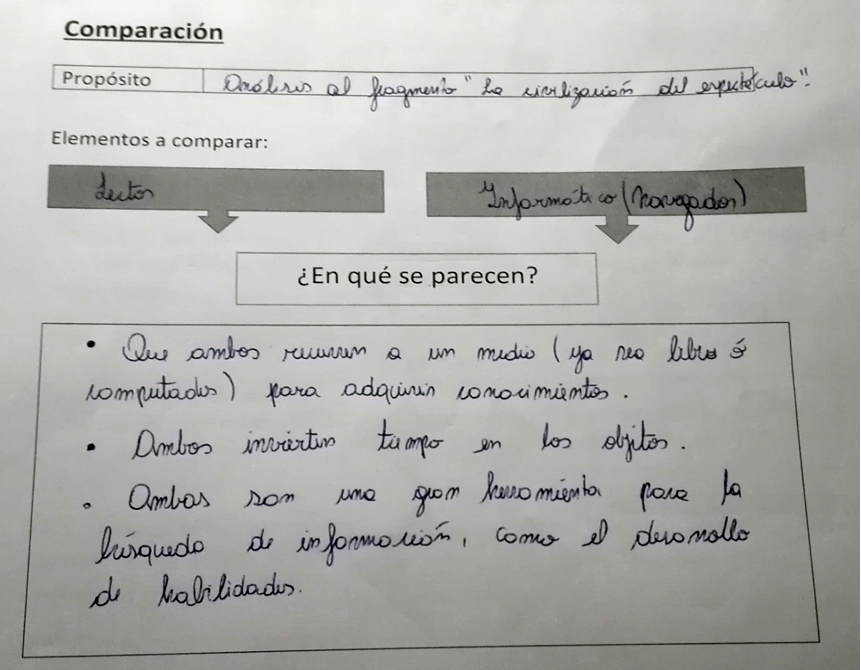 Comparación
Propósito Análisis al fragmento "La civilización del espectáculo".
Elementos a comparar:
Lector Informático (Navegador)
¿En qué se parecen?
• Que ambos recurren a un medio (ya sea libro ó
computador) para adquirir conocimientos.
• Ambos invierten tiempo en los objetos.
• Ambas son una gran herramienta para la
búsqueda de información, como el desarrollo
de habilidades.